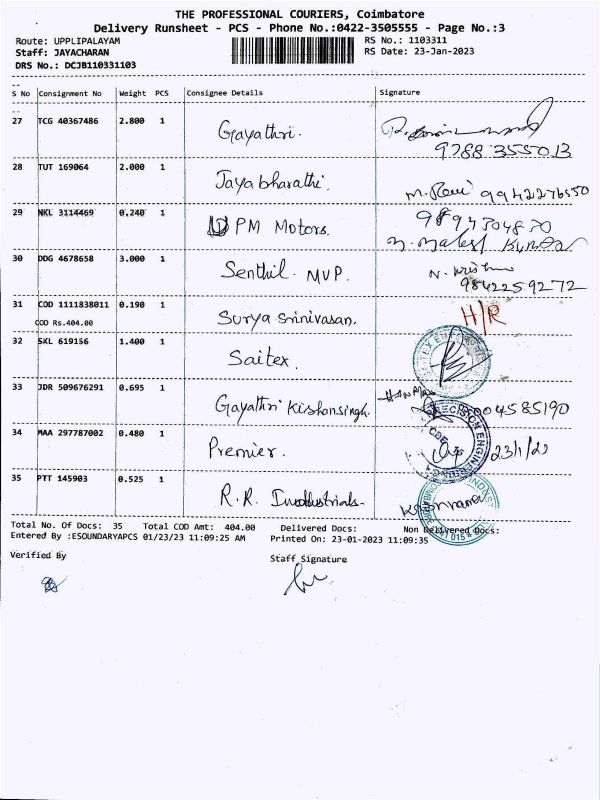 THE PROFESSIONAL COURIERS, Coimbatore
Delivery Runsheet - PCS - Phone No.:0422-3505555 - Page No.:3
Route: UPPLIPALAYAM RS No.: 1103311
Staff: JAYACHARAN RS Date: 23-Jan-2023
DRS No.: DCJB110331103
S No Consignment No Weight PCS Consignee Details Signature
27 TCG 40367486 2.800 1 Gayathri.
9788 355013
28 TUT 169064 2.000 1 Jayabharathi. M. Ravi 9942276550
29 NKL 3114469 0.240 1 PM Motors. 9894304830
30 DDG 4678658 3.000 1 Senthil. MVP.
9842259272
31 COD 1111838011 0.190 1 Surya Srinivasan. H/R
COD Rs.404.00
32 SKL 619156 1.400 1 Saitex.
33 JDR 509676291 0.695 1 Gayathri Kishansingh. 8004585190
34 MAA 297787002 0.480 1 Premier. 23/1/23
35 PTT 145903 0.525 1 R.R. Industrials.
Total No. Of Docs: 35 Total COD Amt: 404.00 Delivered Docs: Non Delivered Docs:
Entered By :ESOUNDARYAPCS 01/23/23 11:09:25 AM Printed On: 23-01-2023 11:09:35
Verified By Staff Signature